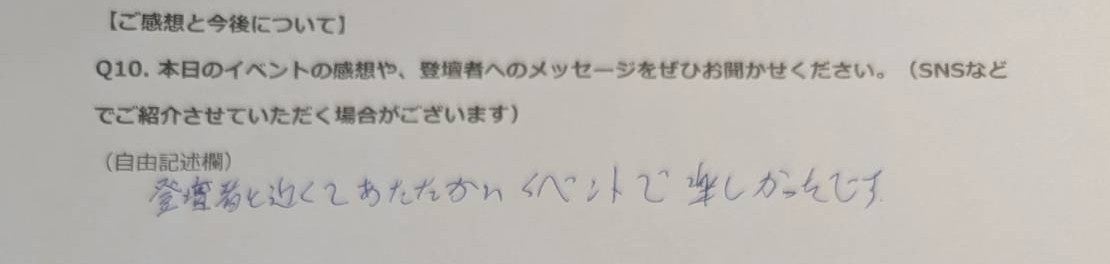 【ご感想と今後について】
Q10. 本日のイベントの感想や、登壇者へのメッセージをぜひお聞かせください。（SNSなど
でご紹介させていただく場合がございます）
（自由記述欄）
登壇者と近くてあたたかいイベントで楽しかったです